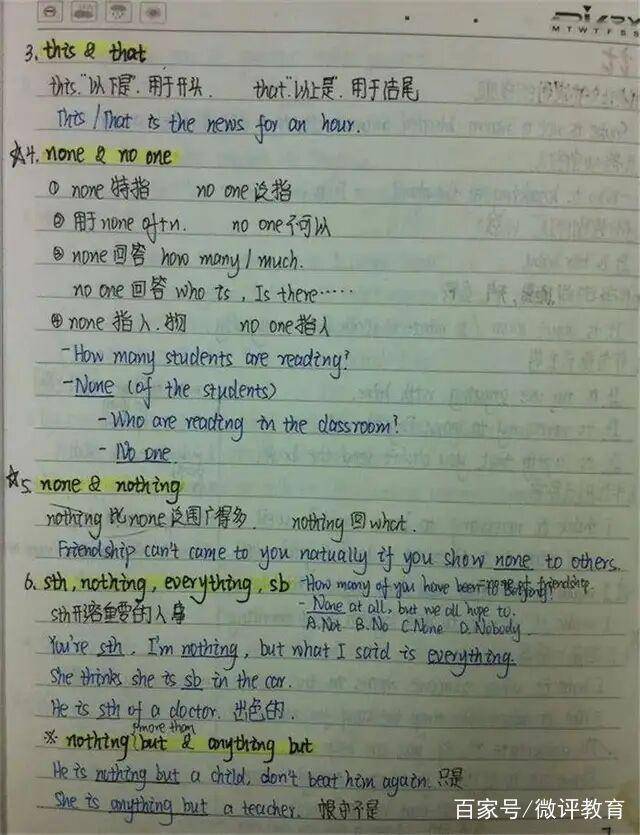 DIARY
M T W T F S S
3. this & that
this "以下是". 用于开头 that "以上是". 用于结尾
This / That is the news for an hour.
☆4. none & no one
① none 特指 no one 泛指
② 用于none of+n. no one不可以
③ none 回答 how many / much.
no one 回答 who is, Is there……
④ none 指人.物 no one指人
-How many students are reading?
-None (of the students)
- Who are reading in the classroom?
- No one
☆5. none & nothing
nothing 比none 范围广得多. nothing 回what.
Friendship can't came to you natually if you show none to others.
of friendship.
6. sth, nothing, everything, sb -How many of you have been to
- None at all, but we all hope to.
sth形容重要的人或事 A.Not B.No C.None D.Nobody
You're sth, I'm nothing, but what I said is everything.
She thinks she is sb in the car.
He is sth of a doctor. 出色的.
more than
※ nothing but & anything but
He is nothing but a child, don't beat him again. 只是
She is anything but a teacher. 根本不是
百家号/微评教育